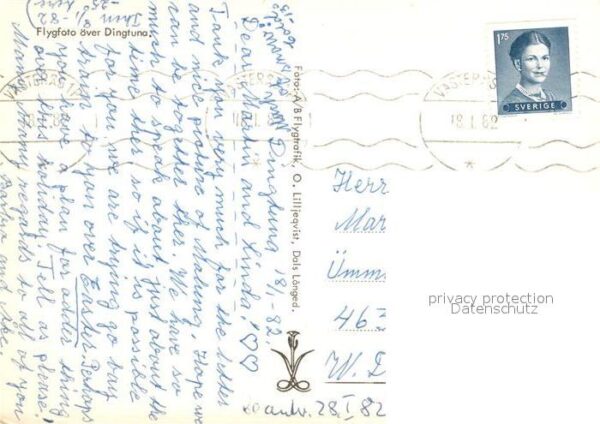 Flygfoto över Dingtuna.
Dingtuna 18/1-82
Dear Martin and Linda! ♡♡
Tank you very much for the letter
and nice picture of Malung. Hope we
can be together ther. We have so
much to speak about just about the
time ther so if it is possible
for you we are trying go
trip to you over Easter. Perhaps
you have a plan for adder thing
this holiday. Tell as please!
Many regards to all of you
Barbro and Åke.
Foto: A/B Flygtrafik, O. Lilljeqvist, Dals Långed.
1.75
SVERIGE
VÄSTERÅS 1
18.1.82
VÄSTERÅS
18.1.82
Herr
Mar
Ümm
46
W. D
beantw. 28.I 82
privacy protection
Datenschutz